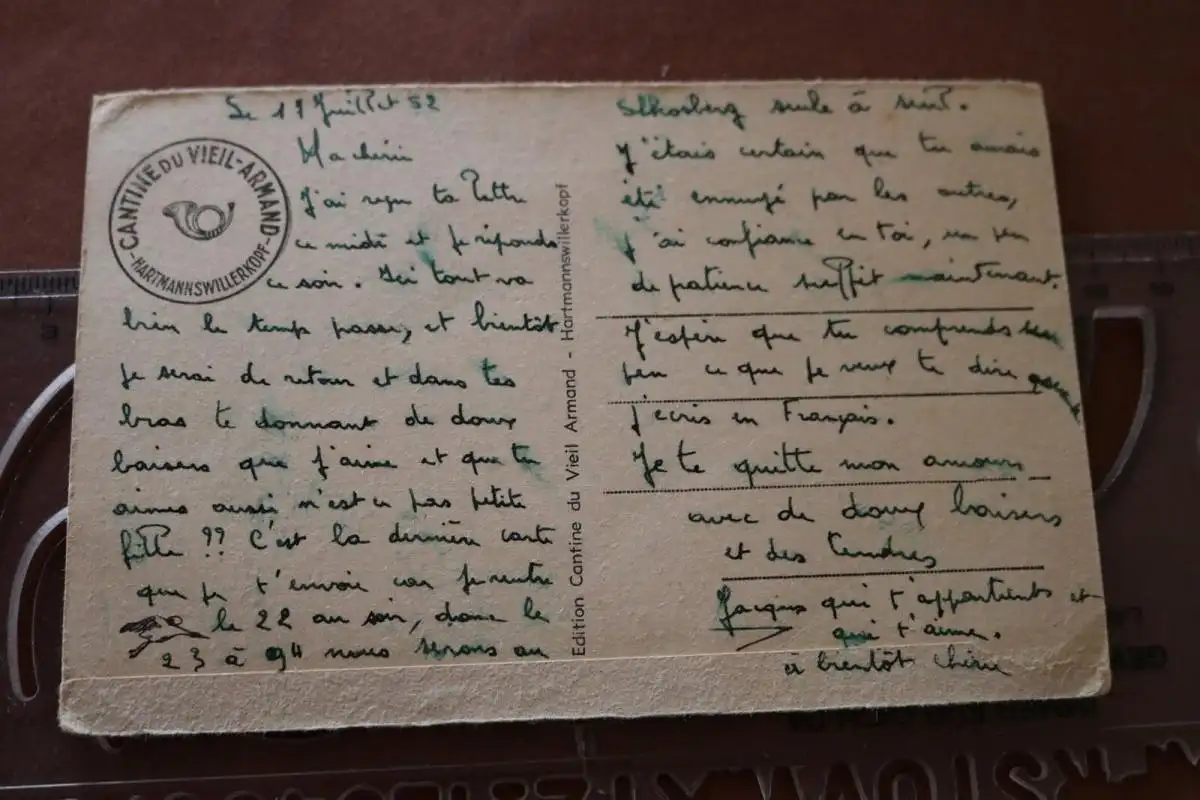 Le 17 Juillet 52
Ma chérie
J'ai reçu ta lettre
ce midi et je réponds
ce soir. Ici tout va
bien le temps passe, et bientôt
je serai de retour et dans tes
bras te donnant de doux
baisers que j'aime et que tu
aimes aussi n'est ce pas petite
fille ?? C'est la dernière carte
que je t'envoie car je rentre
le 22 au soir, donc le
23 à 9H nous serons au
CANTINE DU VIEIL-ARMAND
-HARTMANNSWILLERKOPF-
Edition Cantine du Vieil Armand - Hartmannswillerkopf
seule à seul.
J'étais certain que tu aurais
été ennuyé par les autres,
j'ai confiance en toi, un peu
de patience suffit maintenant.
J'espère que tu comprends un
peu ce que je veux te dire quand
j'ecris en Français.
Je te quitte mon amour
avec de doux baisers
et des tendres
Jacques qui t'appartient et
qui t'aime.
à bientôt chérie